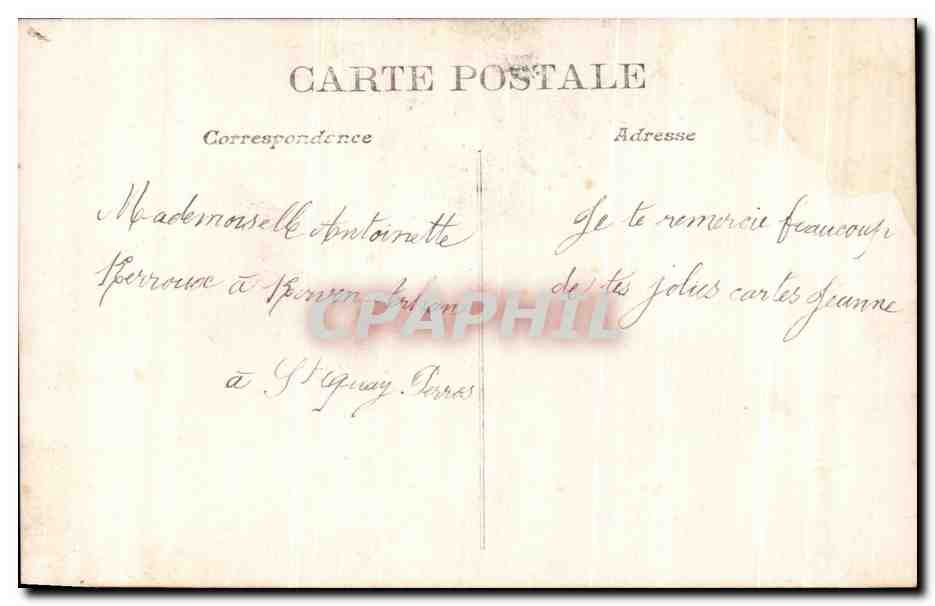 CARTE POSTALE
Correspondance
Adresse
Mademoiselle Antoinette
Kerroux à
à St Quay Perros
Je te remercie beaucoup
de tes jolies cartes Jeanne
CPAPHIL